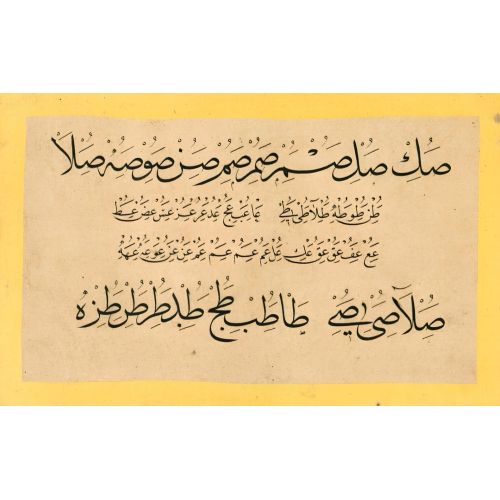 صك صل صم صم صم صن صو صه صلا
طن طو طه طلا طى طي عا عب عج عد عر عز عس عص عط
عع عف عق عق عك عل عم عم عم عم عن عر عو عه
صلا صى صي طا طب طج طد طر طر